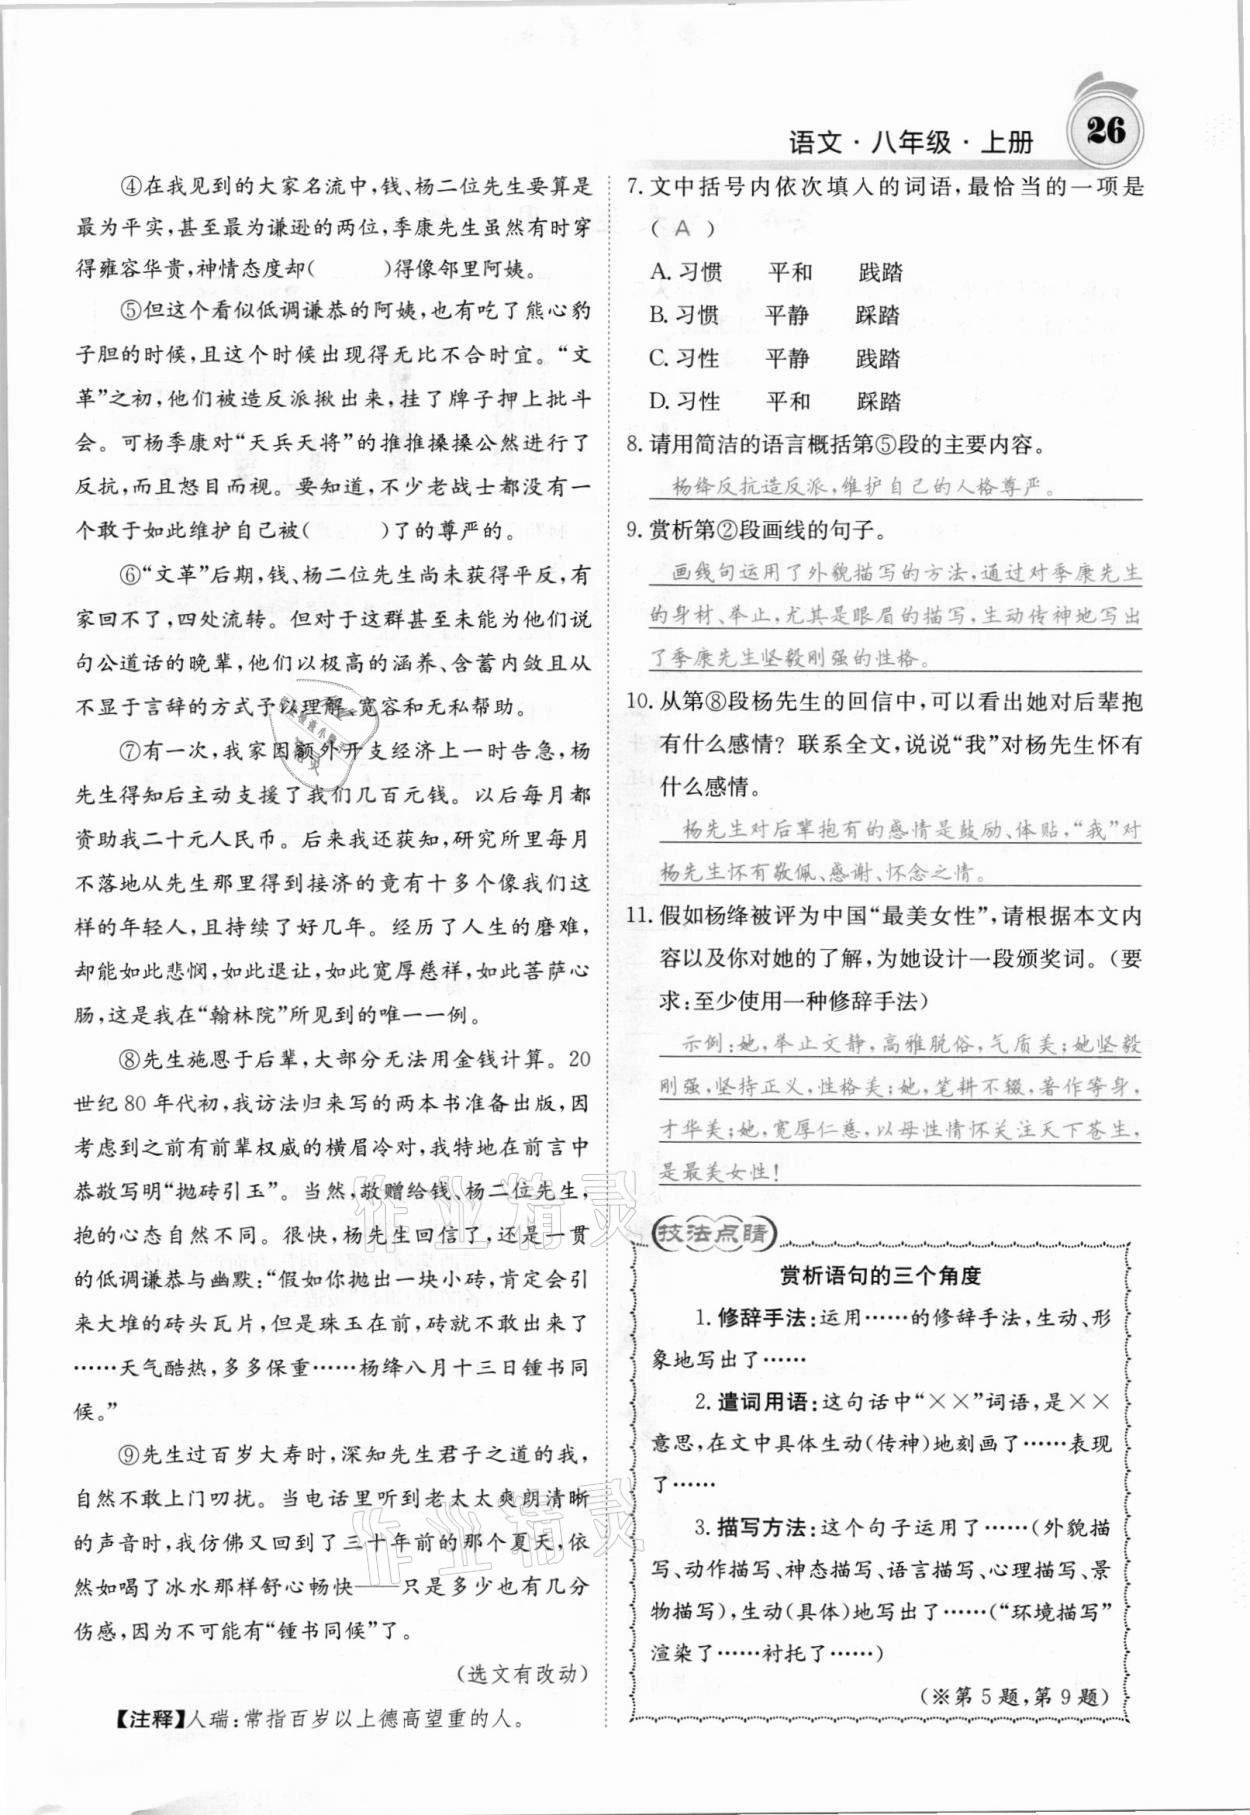 语文·八年级·上册
26
④在我见到的大家名流中,钱、杨二位先生要算是
最为平实,甚至最为谦逊的两位,季康先生虽然有时穿
得雍容华贵,神情态度却(　　)得像邻里阿姨。
⑤但这个看似低调谦恭的阿姨,也有吃了熊心豹
子胆的时候,且这个时候出现得无比不合时宜。“文
革”之初,他们被造反派揪出来,挂了牌子押上批斗
会。可杨季康对“天兵天将”的推推搡搡公然进行了
反抗,而且怒目而视。要知道,不少老战士都没有一
个敢于如此维护自己被(　　)了的尊严的。
⑥“文革”后期,钱、杨二位先生尚未获得平反,有
家回不了,四处流转。但对于这群甚至未能为他们说
句公道话的晚辈,他们以极高的涵养、含蓄内敛且从
不显于言辞的方式予以理解、宽容和无私帮助。
⑦有一次,我家因额外开支经济上一时告急,杨
先生得知后主动支援了我们几百元钱。以后每月都
资助我二十元人民币。后来我还获知,研究所里每月
不落地从先生那里得到接济的竟有十多个像我们这
样的年轻人,且持续了好几年。经历了人生的磨难,
却能如此悲悯,如此退让,如此宽厚慈祥,如此菩萨心
肠,这是我在“翰林院”所见到的唯一一例。
⑧先生施恩于后辈,大部分无法用金钱计算。20
世纪80年代初,我访法归来写的两本书准备出版,因
考虑到之前有前辈权威的横眉冷对,我特地在前言中
恭敬写明“抛砖引玉”。当然,敬赠给钱、杨二位先生,
抱的心态自然不同。很快,杨先生回信了,还是一贯
的低调谦恭与幽默:“假如你抛出一块小砖,肯定会引
来大堆的砖头瓦片,但是珠玉在前,砖就不敢抛出来了
……天气酷热,多多保重……杨绛八月十三日锺书同
候。”
⑨先生过百岁大寿时,深知先生君子之道的我,
自然不敢上门叨扰。当电话里听到老太太爽朗清晰
的声音时,我仿佛又回到了三十年前的那个夏天,依
然如喝了冰水那样舒心畅快——只是多少也有几分
伤感,因为不可能有“锺书同候”了。
(选文有改动)
【注释】人瑞:常指百岁以上德高望重的人。
7. 文中括号内依次填入的词语,最恰当的一项是
( A )
A. 习惯　平和　践踏
B. 习惯　平静　踩踏
C. 习性　平静　践踏
D. 习性　平和　踩踏
8. 请用简洁的语言概括第⑤段的主要内容。
杨绛反抗造反派,维护自己的人格尊严。
9. 赏析第②段画线的句子。
画线句运用了外貌描写的方法,通过对季康先生
的身材、举止,尤其是眼眉的描写,生动传神地写出
了季康先生坚毅刚强的性格。
10. 从第⑧段杨先生的回信中,可以看出她对后辈抱
有什么感情?联系全文,说说“我”对杨先生怀有
什么感情。
杨先生对后辈抱有的感情是鼓励、体贴,“我”对
杨先生怀有敬佩、感谢、怀念之情。
11. 假如杨绛被评为中国“最美女性”,请根据本文内
容以及你对她的了解,为她设计一段颁奖词。(要
求:至少使用一种修辞手法)
示例:她,举止文静,高雅脱俗,气质美;她坚毅
刚强,坚持正义,性格美;她,笔耕不辍,著作等身,
才华美;她,宽厚仁慈,以母性情怀关注天下苍生,
是最美女性!
技法点睛
赏析语句的三个角度
1. 修辞手法:运用……的修辞手法,生动、形
象地写出了……
2. 遣词用语:这句话中“××”词语,是××
意思,在文中具体生动(传神)地刻画了……表现
了……
3. 描写方法:这个句子运用了……(外貌描
写、动作描写、神态描写、语言描写、心理描写、景
物描写),生动(具体)地写出了……(“环境描写”
渲染了……衬托了……)
(※第5题,第9题)
作业精灵
作业精灵